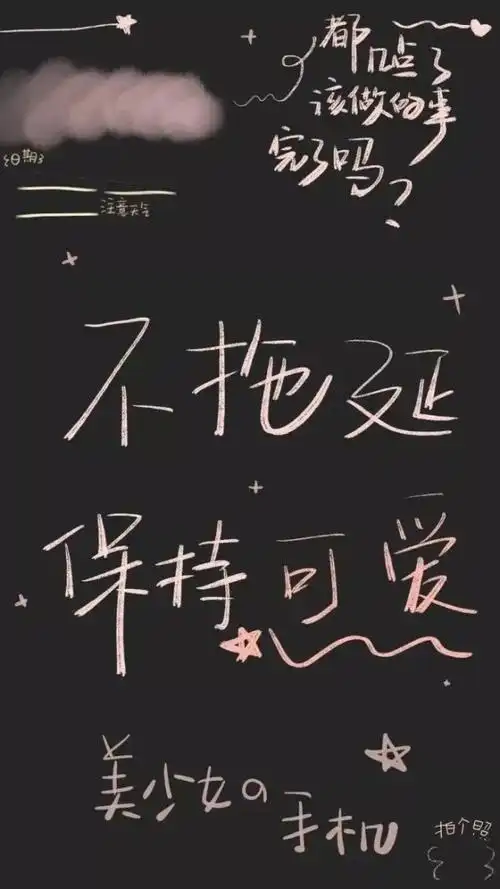 都几点了
该做的事
完了吗?
日期
注意天气
不拖延
保持可爱
美少女の
手机
拍个照